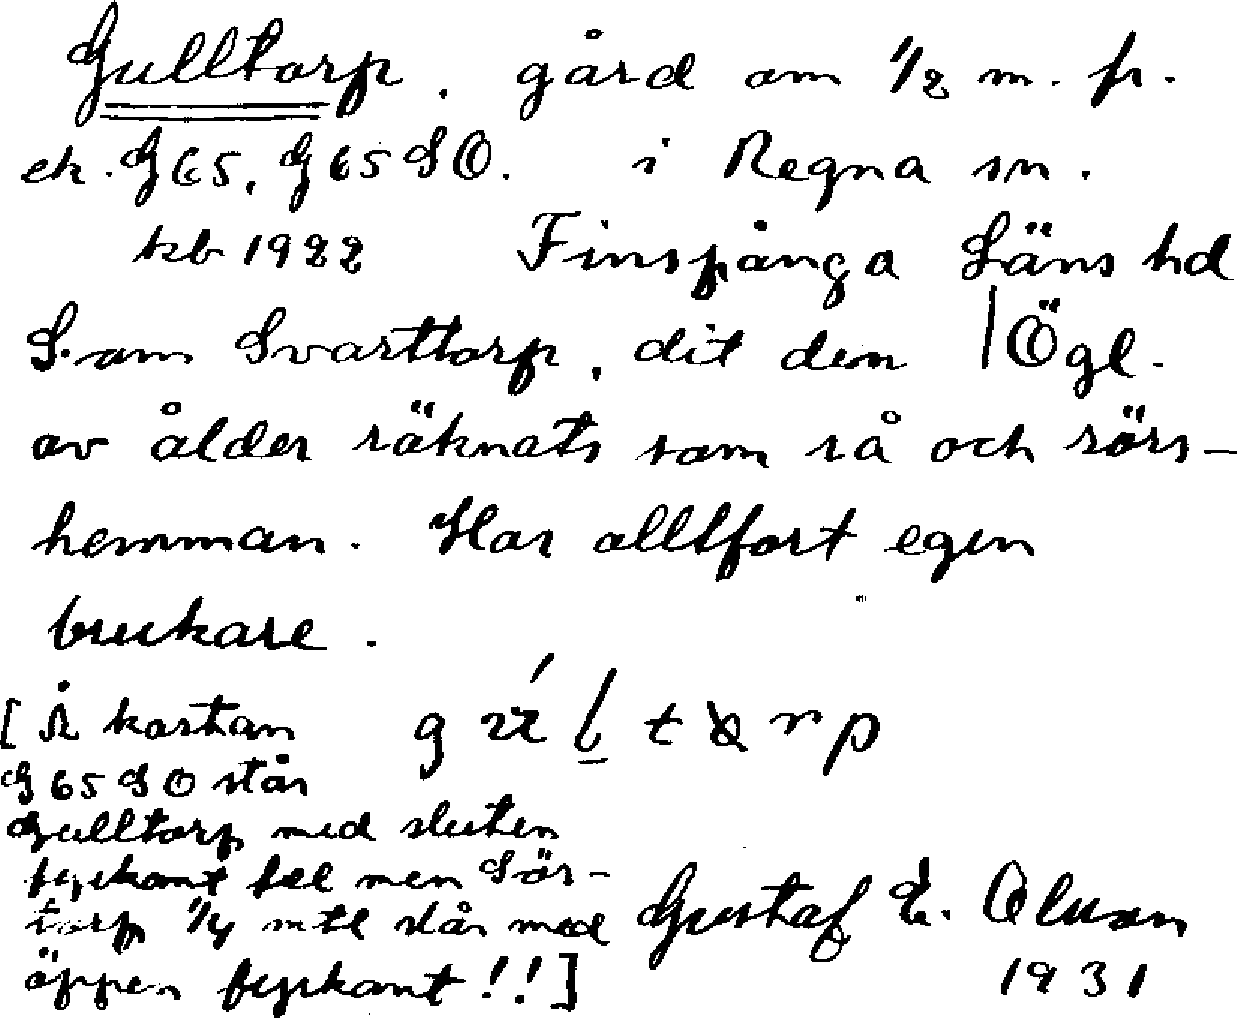 Gulltorp. gård om 1/2 m. fr.
ek. G65, G65SO. i Regna sn.
kb 1922 Finspånga Läns hd
S. om Svarttorp, dit den | Ögl.
av ålder räknats som rå och rörs-
hemman. Har alltfort egen
brukare.
[Å kartan
G65SO står
Gulltorp med sluten
fyrkant fel men Sör-
torp 1/4 mtl står med
öppen fyrkant!!]
Gustaf E. Olsson
1931